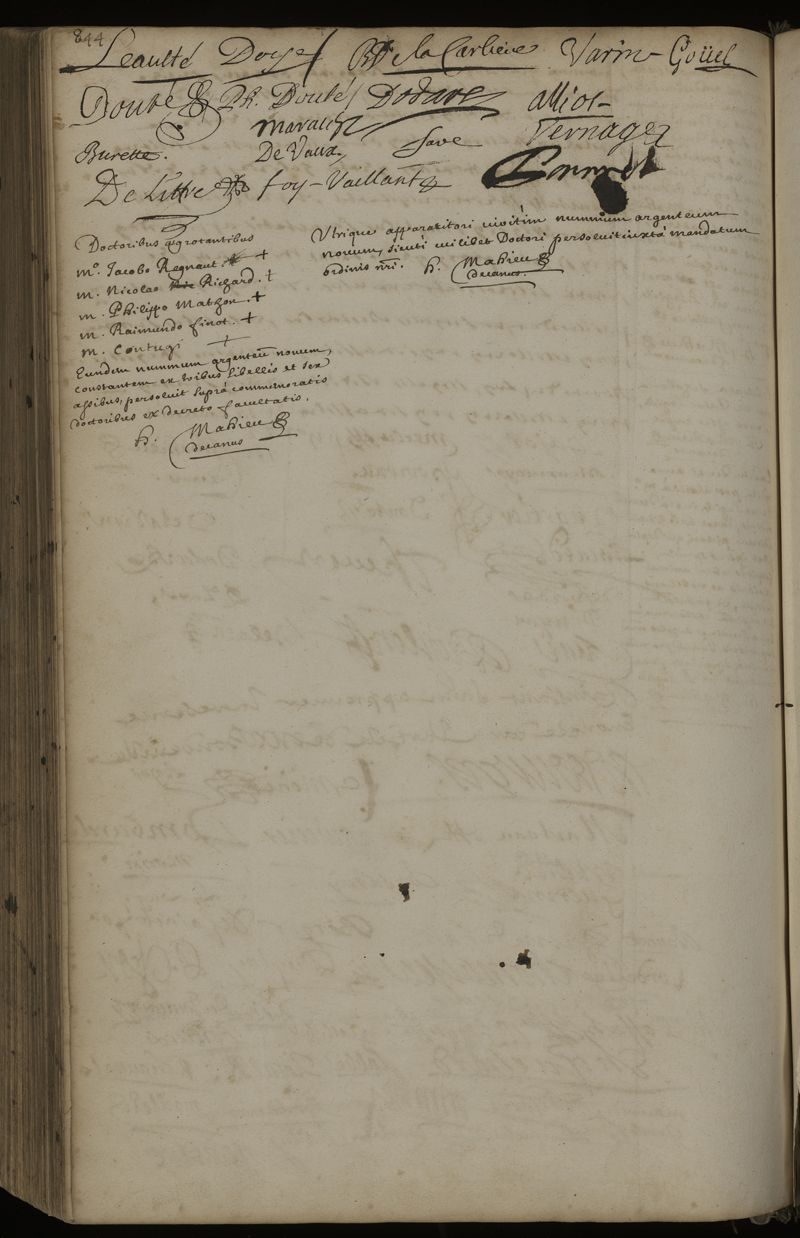 844
Leaulté Doye De la Carliere Varin Goüel
Douté Ph. Douté Dodart alliot
Burette. De Vaux Save Vernage
De Littre foy-Vaillant
Doctoribus ægrotantibus
m.º Jacobo Regnaut. +
m. Nicolao Richard. +
m. Philippo Mattion. +
m. Raimundo finot. +
m. Contugi +
Eundem nummum argenteū novum,
constantem ex tribus libellis et sex
assibus, persoluit suprà commemoratis
doctoribus ex decreto facultatis.
h. Mahieu
decanus
Vtrique apparitori nummum argenteum
novum, sicuti cuilibet Doctori persoluit iuxtà mandatum
ordinis nri. h. Mahieu
decanus.